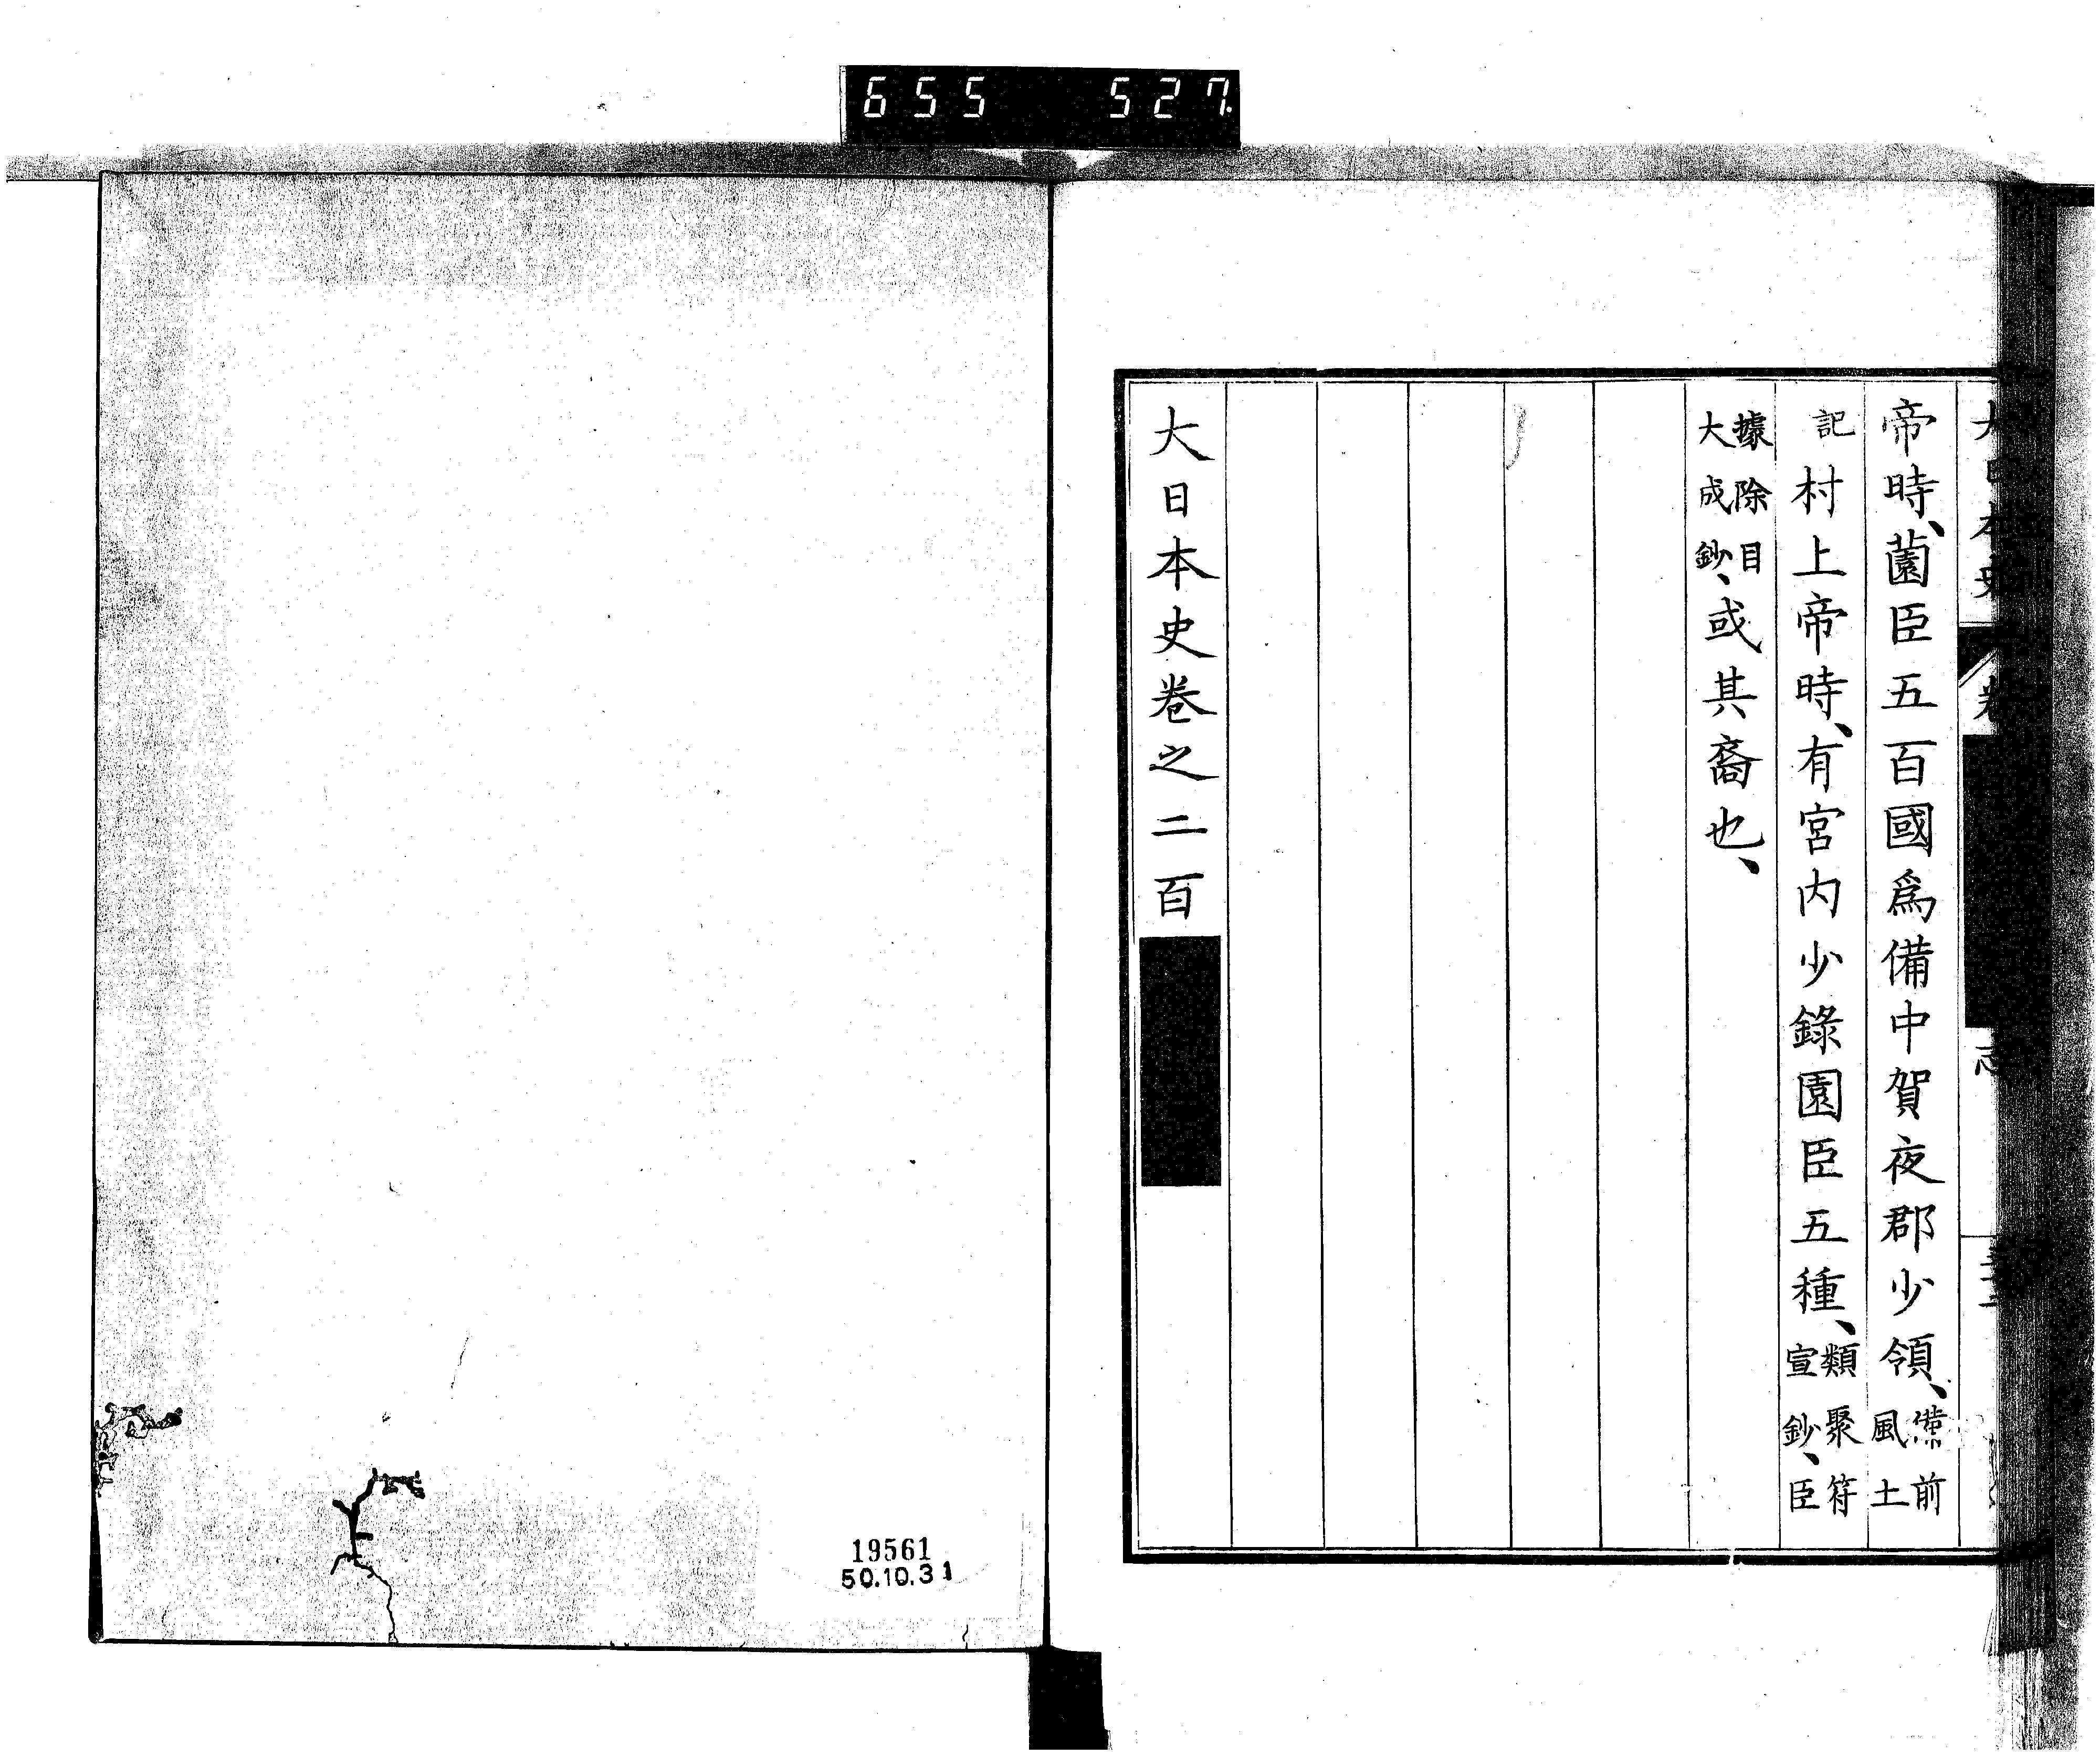 655 527
帝時、薗臣五百國爲備中賀夜郡少領、備前風土
記村上帝時、有宮内少錄園臣五種、類聚符宣鈔、臣
據除目大成鈔、或其裔也、
大日本史卷之二百
19561
50.10.31